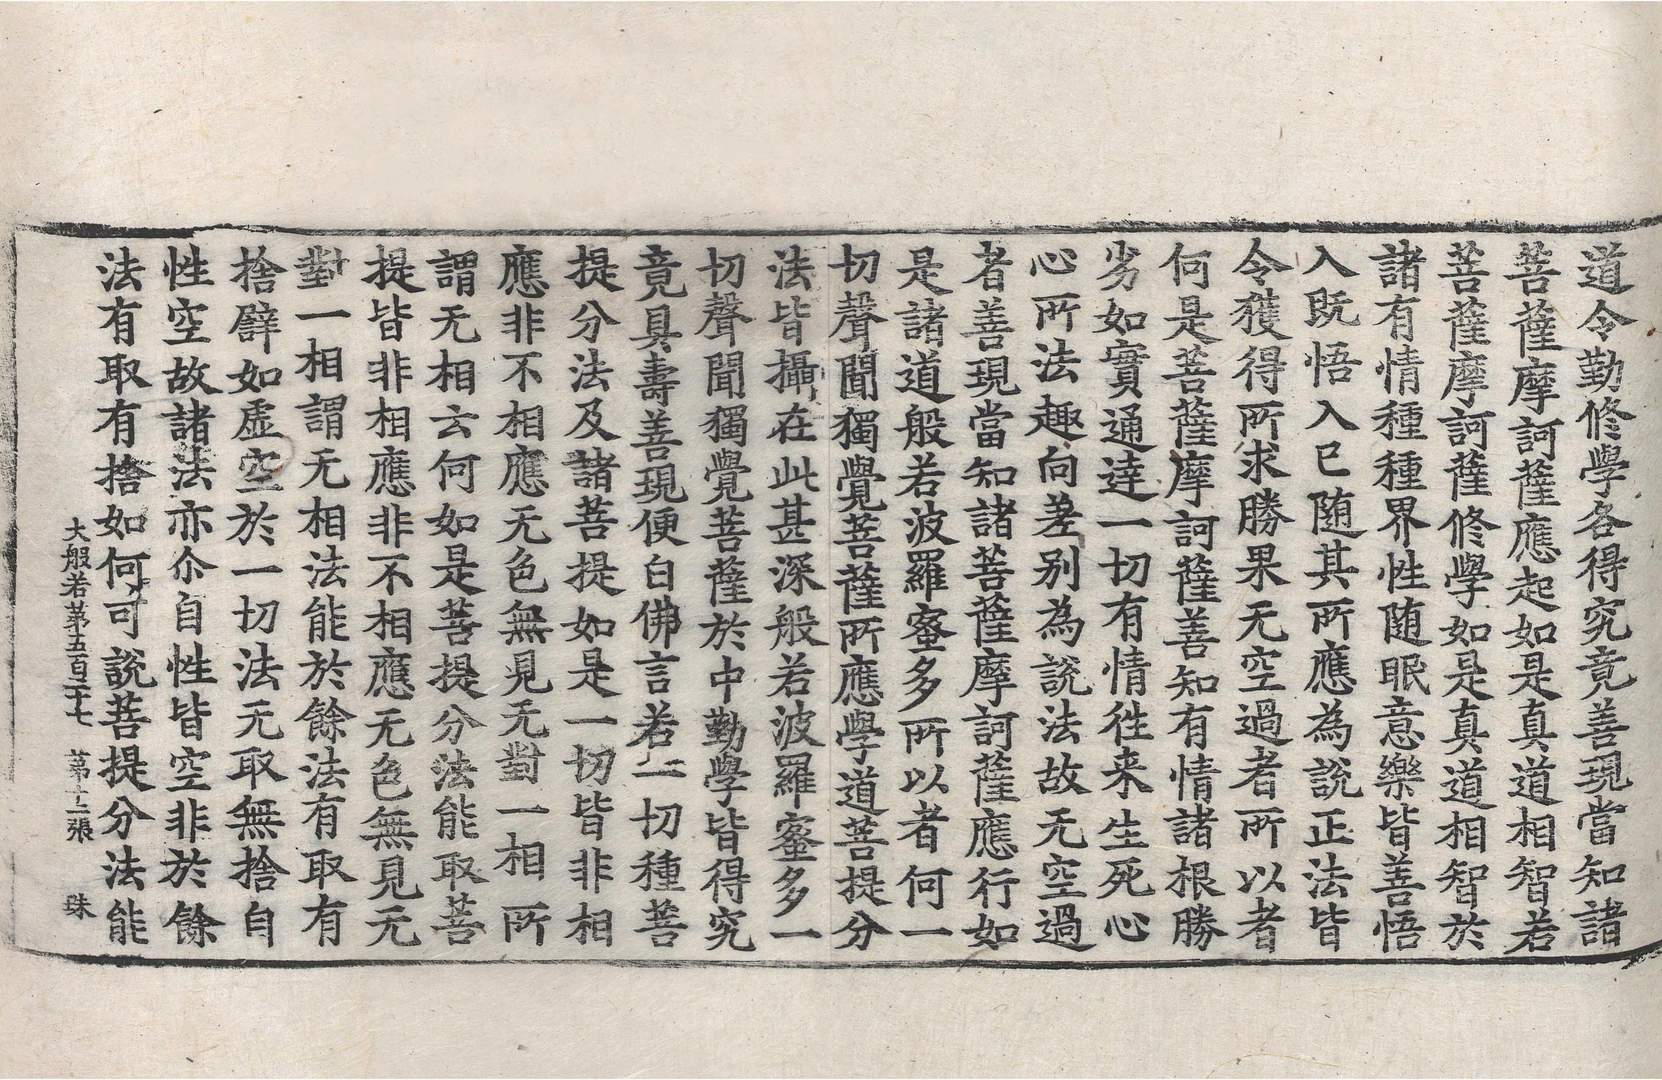 道令勤修學各得究竟善現當知諸
菩薩摩訶薩應起如是真道相智若
菩薩摩訶薩修學如是真道相智於
諸有情種種界性随眠意樂皆善悟
入既悟入已随其所應為說正法皆
令獲得所求勝果无空過者所以者
何是菩薩摩訶薩善知有情諸根勝
劣如實通達一切有情徃来生死心
心所法趣向差别為說法故无空過
者善現當知諸菩薩摩訶薩應行如
是諸道般若波羅蜜多所以者何一
切聲聞獨覺菩薩所應學道菩提分
法皆攝在此甚深般若波羅蜜多一
切聲聞獨覺菩薩於中勤學皆得究
竟具壽善現便白佛言若一切種菩
提分法及諸菩提如是一切皆非相
應非不相應无色無見无對一相所
謂无相云何如是菩提分法能取菩
提皆非相應非不相應无色無見无
對一相謂无相法能於餘法有取有
捨譬如虛空於一切法无取無捨自
性空故諸法亦尒自性皆空非於餘
法有取有捨如何可說菩提分法能
大般若第五百二十七 第十二張 珠